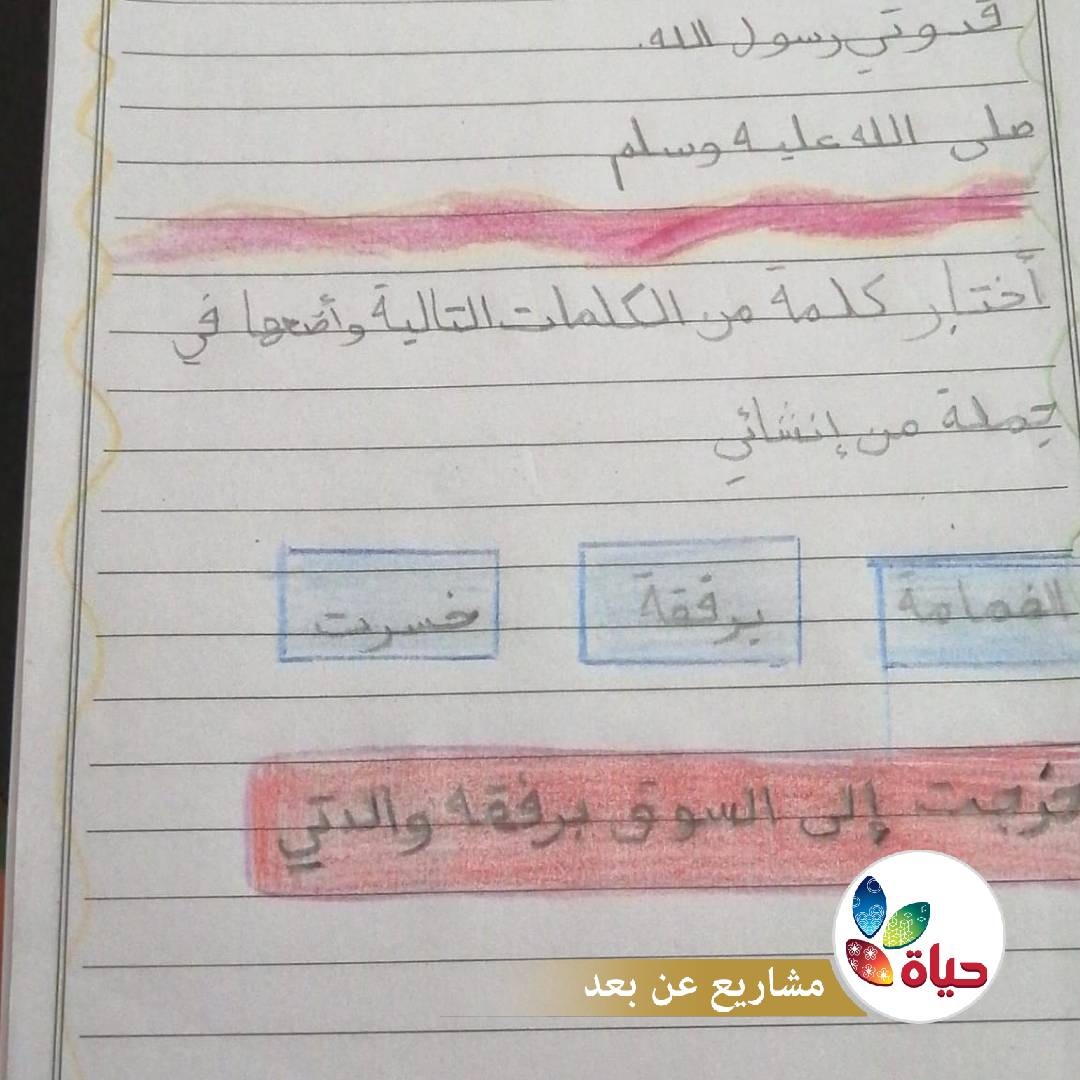 قدوتي رسول الله.
صلى الله عليه وسلم
أختار كلمة من الكلمات التالية وأضعها في
جملة من إنشائي
الغمامة برفقة خسرت
خرجت إلى السوق برفقه والدتي
حياة
مشاريع عن بعد